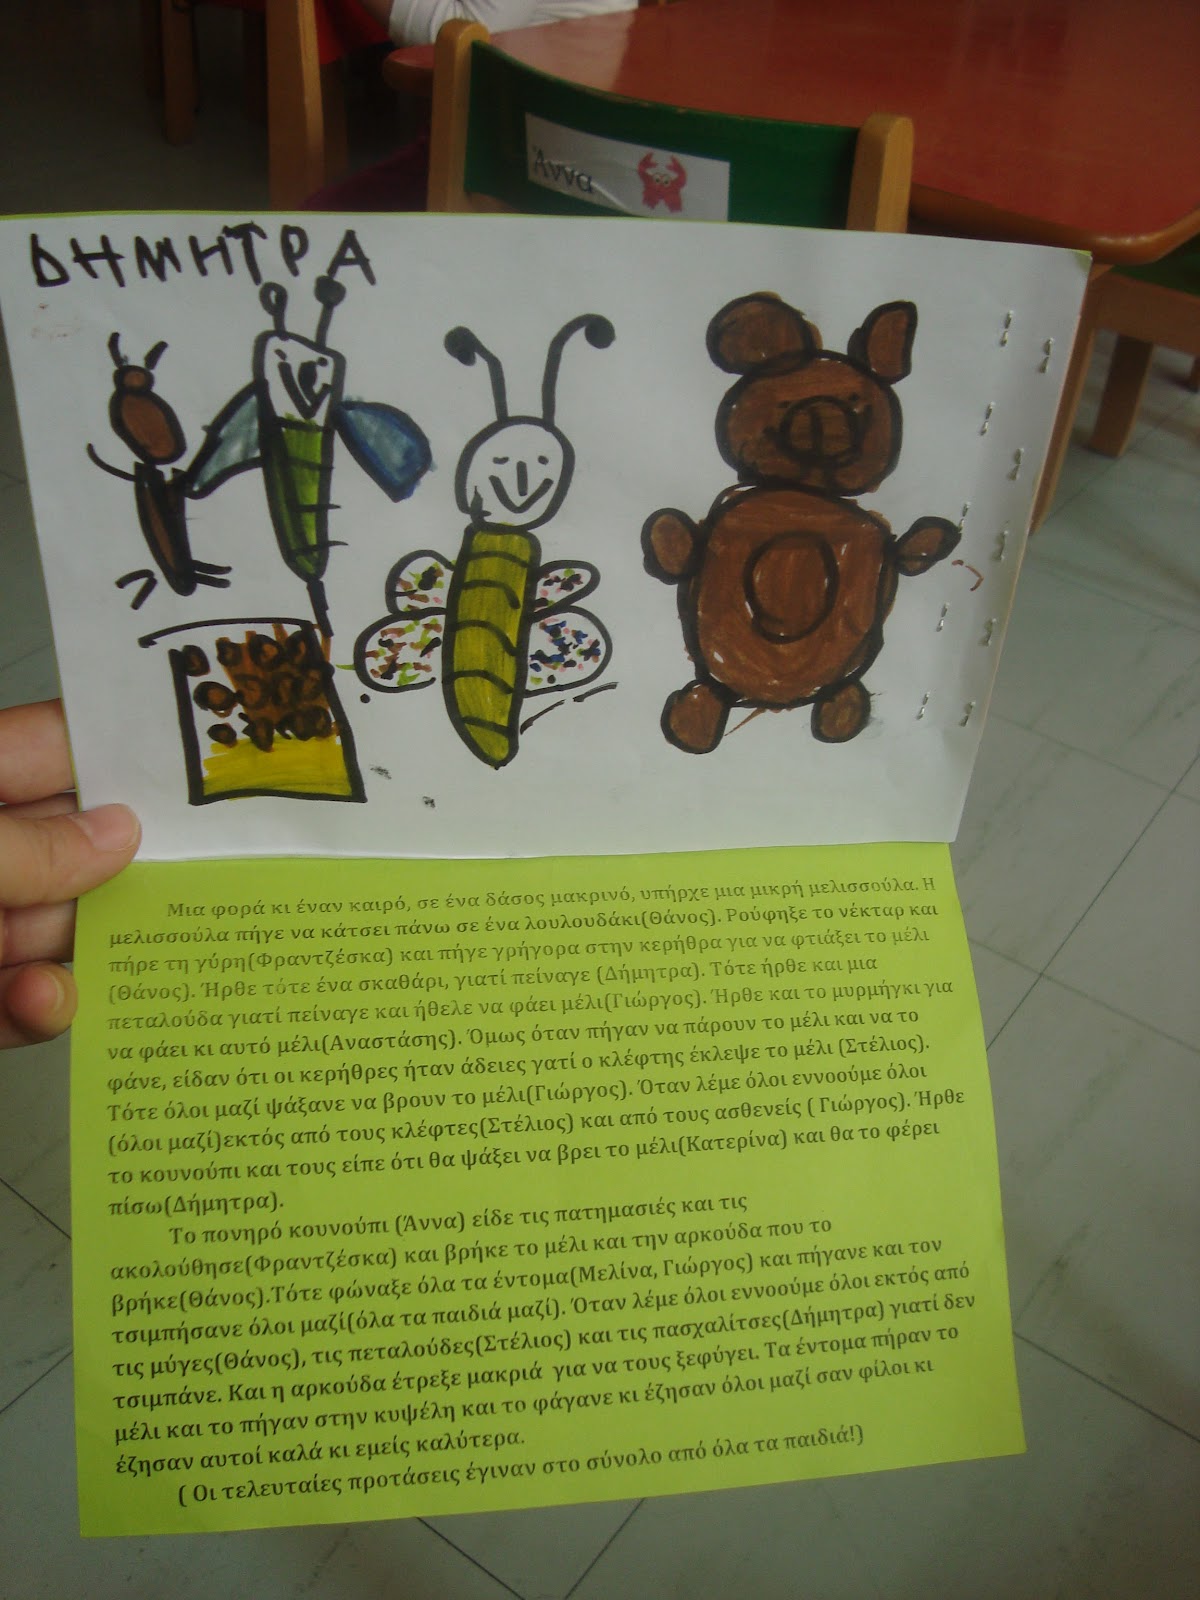 Άννα
ΔΗΜΗΤΡΑ
Μια φορά κι έναν καιρό, σε ένα δάσος μακρινό, υπήρχε μια μικρή μελισσούλα. Η
μελισσούλα πήγε να κάτσει πάνω σε ένα λουλουδάκι(Θάνος). Ρούφηξε το νέκταρ και
πήρε τη γύρη(Φραντζέσκα) και πήγε γρήγορα στην κερήθρα για να φτιάξει το μέλι
(Θάνος). Ήρθε τότε ένα σκαθάρι, γιατί πείναγε (Δήμητρα). Τότε ήρθε και μια
πεταλούδα γιατί πείναγε και ήθελε να φάει μέλι(Γιώργος). Ήρθε και το μυρμήγκι για
να φάει κι αυτό μέλι(Αναστάσης). Όμως όταν πήγαν να πάρουν το μέλι και να το
φάνε, είδαν ότι οι κερήθρες ήταν άδειες γατί ο κλέφτης έκλεψε το μέλι (Στέλιος).
Τότε όλοι μαζί ψάξανε να βρουν το μέλι(Γιώργος). Όταν λέμε όλοι εννοούμε όλοι
(όλοι μαζί)εκτός από τους κλέφτες(Στέλιος) και από τους ασθενείς ( Γιώργος). Ήρθε
το κουνούπι και τους είπε ότι θα ψάξει να βρει το μέλι(Κατερίνα) και θα το φέρει
πίσω(Δήμητρα).
Το πονηρό κουνούπι (Άννα) είδε τις πατημασιές και τις
ακολούθησε(Φραντζέσκα) και βρήκε το μέλι και την αρκούδα που το
βρήκε(Θάνος).Τότε φώναξε όλα τα έντομα(Μελίνα, Γιώργος) και πήγανε και τον
τσιμπήσανε όλοι μαζί(όλα τα παιδιά μαζί). Όταν λέμε όλοι εννοούμε όλοι εκτός από
τις μύγες(Θάνος), τις πεταλούδες(Στέλιος) και τις πασχαλίτσες(Δήμητρα) γιατί δεν
τσιμπάνε. Και η αρκούδα έτρεξε μακριά για να τους ξεφύγει. Τα έντομα πήραν το
μέλι και το πήγαν στην κυψέλη και το φάγανε κι έζησαν όλοι μαζί σαν φίλοι κι
έζησαν αυτοί καλά κι εμείς καλύτερα.
( Οι τελευταίες προτάσεις έγιναν στο σύνολο από όλα τα παιδιά!)